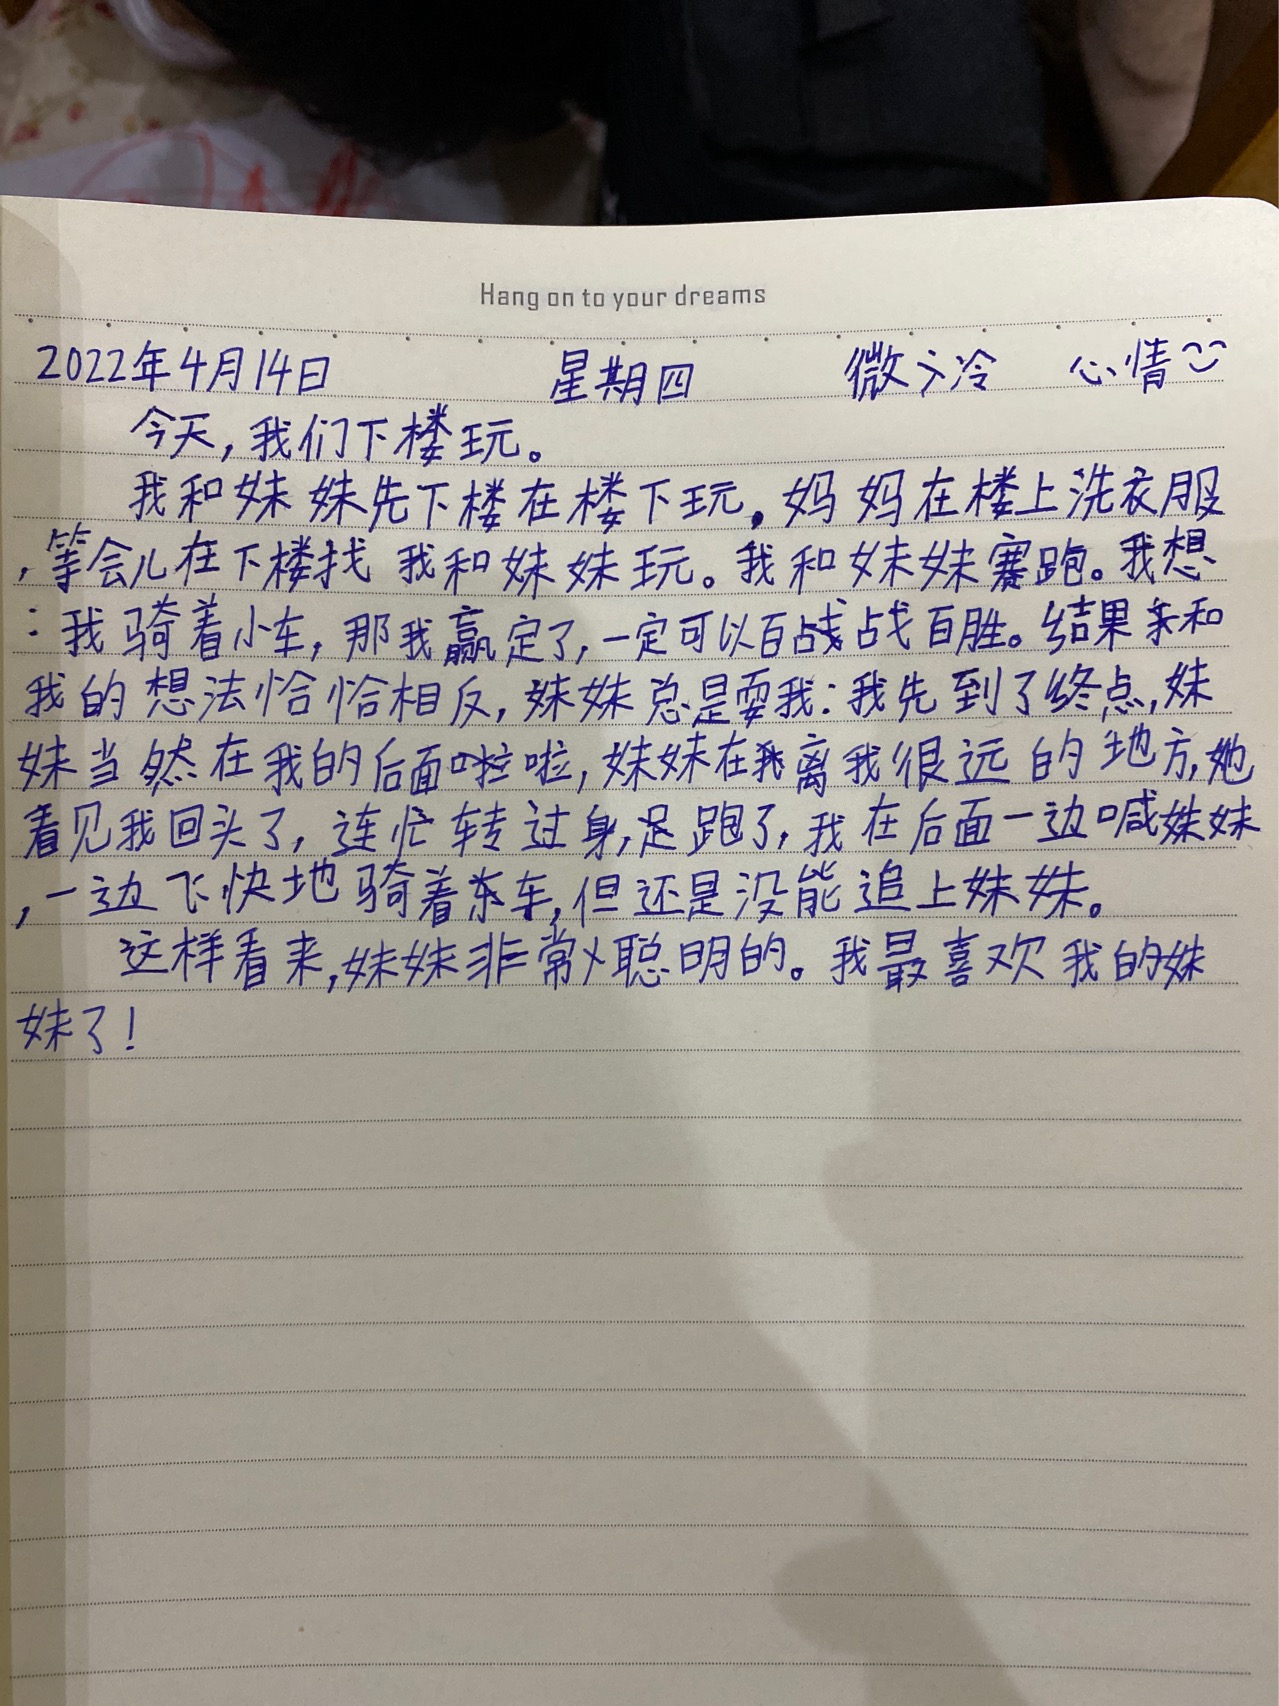 Hang on to your dreams
2022年4月14日 星期四 微冷 心情
今天,我们下楼玩。
我和妹妹先下楼在楼下玩。妈妈在楼上洗衣服
,等会儿在下楼找我和妹妹玩。我和妹妹赛跑。我想
:我骑着小车,那我赢定了,一定可以百战战百胜。结果亲和
我的想法恰恰相反,妹妹总是耍我:我先到了终点,妹
妹当然在我的后面啦啦,妹妹在离我很远的地方,她
看见我回头了,连忙转过身,足跑了,我在后面一边喊妹妹
,一边飞快地骑着车,但还是没能追上妹妹。
这样看来,妹妹非常聪明的。我最喜欢我的妹
妹了!